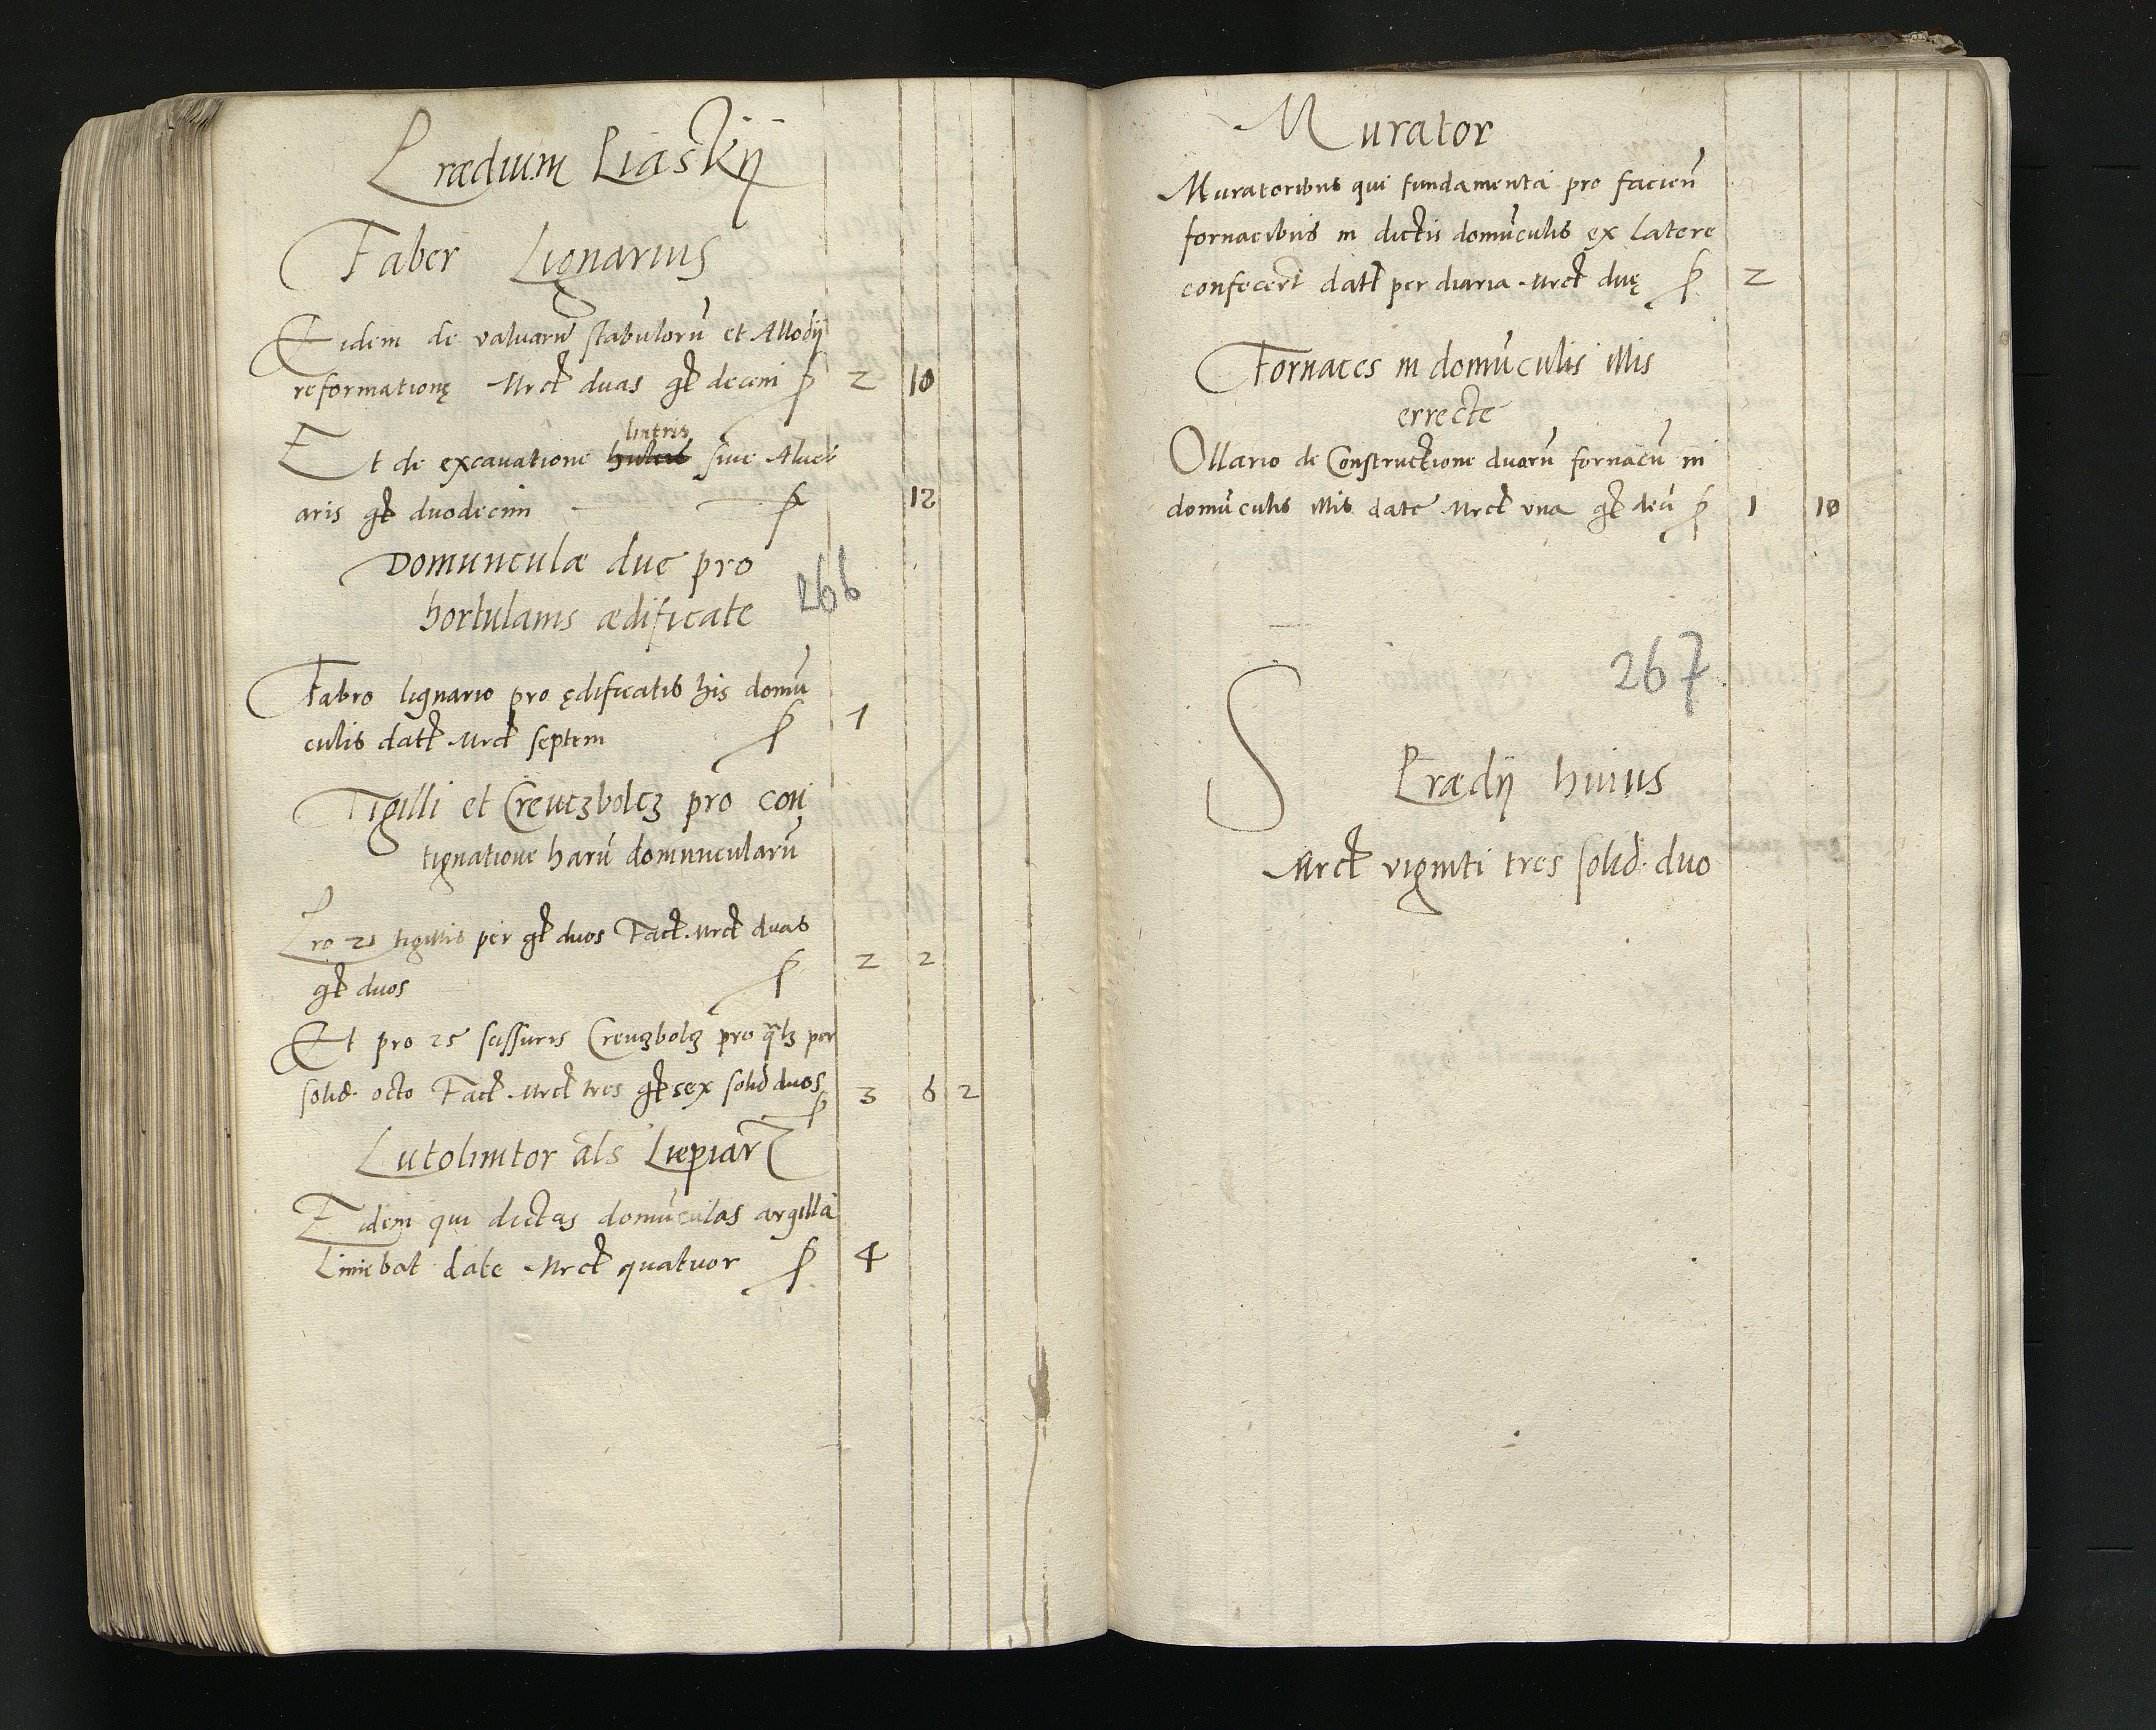 Prædium Piaskÿ
Faber Lignarius
Eidem de valuarū stabulorū et Allodÿ
reformationę Mrc duas gr decem p 2 10
lintris
Et de excauatione siue Alue
aris gr duodecim p 12
Domunculæ due pro
hortulanis ædificate
266
Fabro lignario pro ędificatis his domū
culis dat Mrc septem p 7
Tigilli et Creuczholcz pro con
tignatione harū domuncularū
Pro 21 tigillis per gr duos Fac. Mrc duas
gr duos p 2 2
Et pro 25 scissuris Creuzholcz pro qlz per
solid. octo Fac Mrc tres gr sex solid duos p 3 6 2
Lutolinitor als Liepiarz
Eidem qui dictas domūculas argilla
Liniebat date Mrc quatuor p 4
Murator
Muratoribus qui fundamenta pro facien
fornacibus in dictis domūculis ex Latere
confecert dat per diaria Mrc duę p 2
Fornaces in domūculis illis
errecte
Ollario de Constructione duarū fornacū in
domūculis illis date Mrc vna gr decē p 1 10
267
S
Prædÿ huius
Mrc viginti tres solid. duo